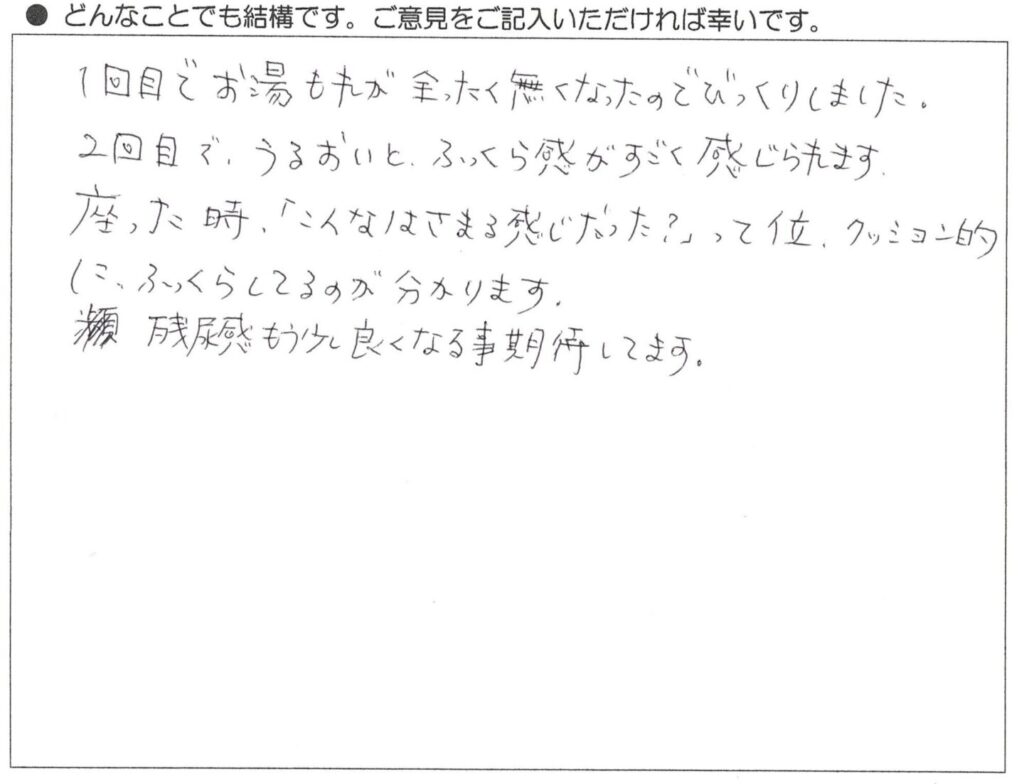 ● どんなことでも結構です。ご意見をご記入いただければ幸いです。
1回目でお湯もれが全ったく無くなったのでびっくりしました。
2回目で、うるおいと、ふっくら感がすごく感じられます。
座った時、「こんなはさまる感じだった?」って位、クッション的
に、ふっくらしてるのが分かります。
残尿感もう少し良くなる事期待してます。